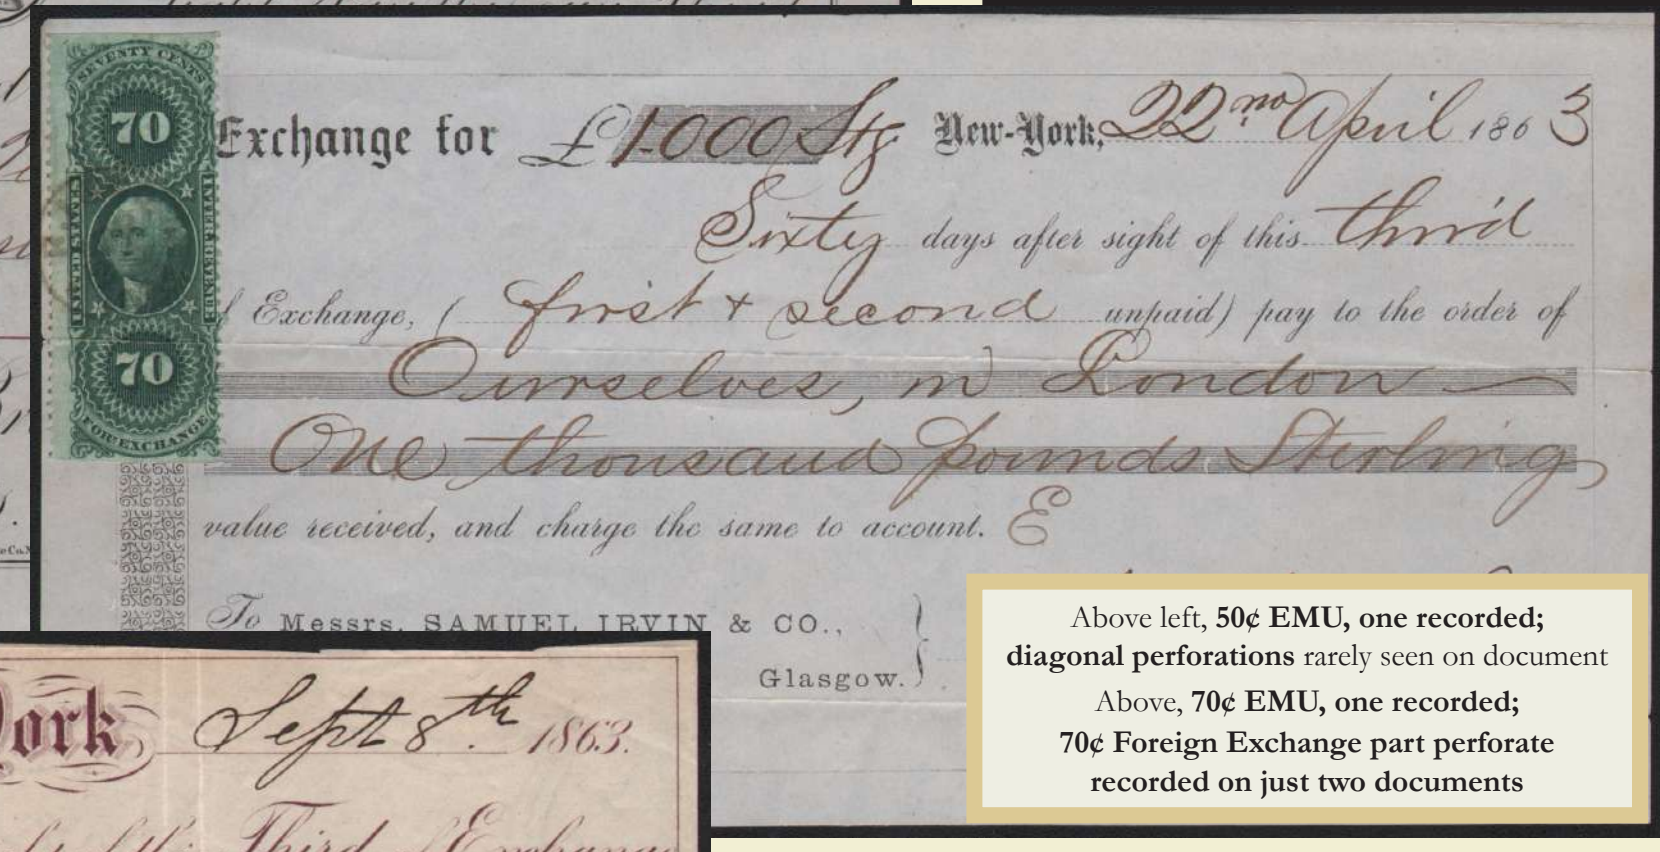 SEVENTY CENTS
70
UNITED STATES
INTER. REVENUE
70
FOR. EXCHANGE
Exchange for £1000 Stg New-York, 22nd April 1863
Sixty days after sight of this third
f Exchange, ( first + second unpaid) pay to the order of
Ourselves, in London
One thousand pounds Sterling
value received, and charge the same to account. E
To Messrs. SAMUEL IRVIN & CO.,
Glasgow.
Above left, 50¢ EMU, one recorded;
diagonal perforations rarely seen on document
Above, 70¢ EMU, one recorded;
70¢ Foreign Exchange part perforate
recorded on just two documents
ork Sept 8th 1863.
Third of Exchange